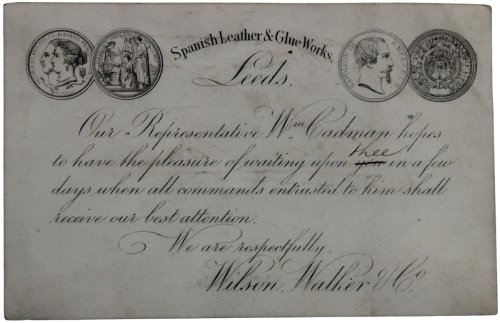 Spanish Leather & Glue Works,
Leeds.
Our Representative Wm Cadman hopes
to have the pleasure of waiting upon you thee in a few
days when all commands entrusted to him shall
receive our best attention.
We are respectfully,
Wilson, Walker & Co